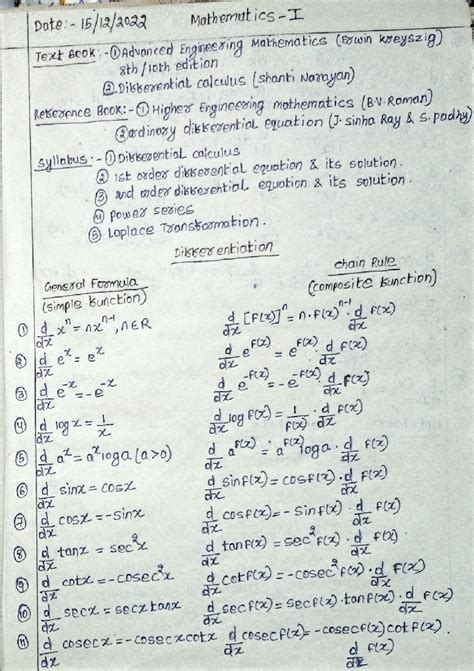 Date:- 15/12/2022 Mathematics-I
Text Book:-① Advanced Engineering Mathematics (Erwin kreyszig)
8th/10th edition.
② Differential calculus (Shanti Narayan)
Reference Book:-① Higher Engineering mathematics (B.V. Raman)
② ordinary differential equation (J. sinha Ray & S. padhy)
syllabus:-① Differential calculus
② 1st order differential equation & its solution.
③ 2nd order differential equation & its solution.
④ power series
⑤ Laplace Transformation.
Differentiation
General Formula (simple function)
chain Rule (composite function)
① d/dx xⁿ = nxⁿ⁻¹, n∈R d/dx [f(x)]ⁿ = n·f(x)ⁿ⁻¹· d/dx f(x)
② d/dx eˣ = eˣ d/dx e^f(x) = e^f(x)· d/dx f(x)
③ d/dx e⁻ˣ = -e⁻ˣ d/dx e^-f(x) = -e^-f(x)· d/dx f(x)
④ d/dx log x = 1/x d/dx log f(x) = 1/f(x) · d/dx f(x)
⑤ d/dx aˣ = aˣ log a (a>0) d/dx a^f(x) = a^f(x) log a · d/dx f(x)
⑥ d/dx sinx = cosx d/dx sin f(x) = cos f(x)· d/dx f(x)
⑦ d/dx cosx = -sinx d/dx cos f(x) = -sin f(x)· d/dx f(x)
⑧ d/dx tanx = sec²x d/dx tan f(x) = sec² f(x)· d/dx f(x)
⑨ d/dx cotx = -cosec²x d/dx cot f(x) = -cosec² f(x)· d/dx f(x)
⑩ d/dx secx = secx tanx d/dx sec f(x) = sec f(x)· tan f(x)· d/dx f(x)
⑪ d/dx cosecx = -cosecx cotx d/dx cosec f(x) = -cosec f(x) cot f(x)
d/dx f(x)